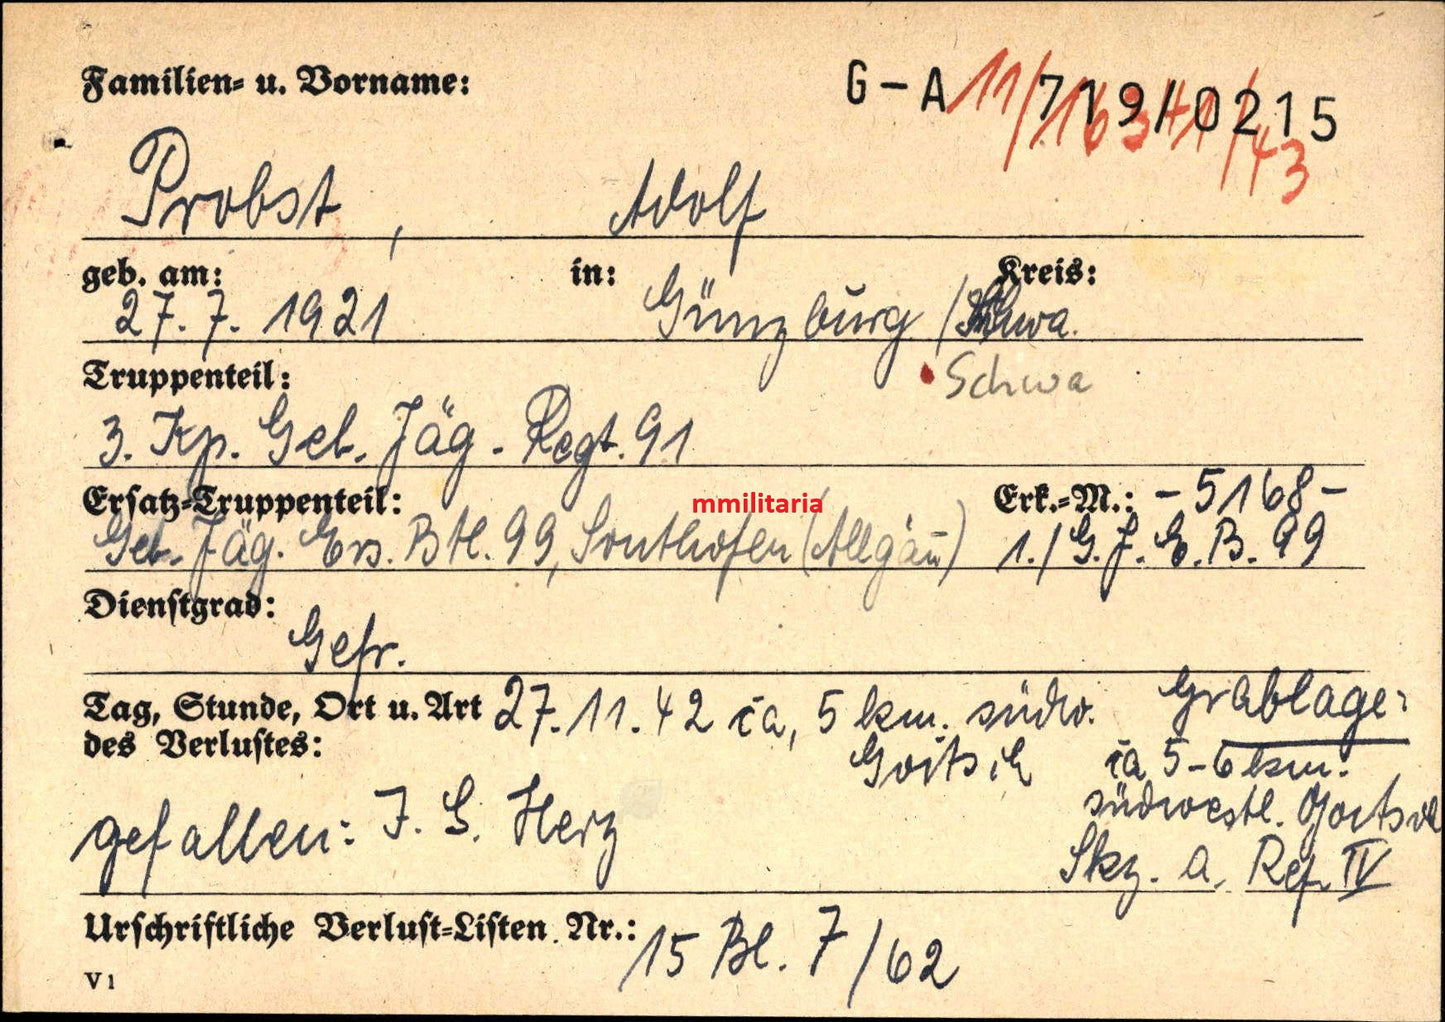 Familien- u. Vorname:
G-A 719/0215
Probst, Adolf
geb. am: in: Kreis:
27.7.1921 Günzburg / Schwa.
Schwa
Truppenteil:
3. Kp. Geb. Jäg.-Regt. 91
Ersatz-Truppenteil: Erk.-M.: -5168-
mmilitaria
Geb. Jäg. Ers. Btl. 99, Sonthofen (Allgäu) 1./G.J.E.B. 99
Dienstgrad:
Gefr.
Tag, Stunde, Ort u. Art 27.11.42 ca, 5 km. südw. Grablage:
des Verlustes: Goitsch ca 5-6 km.
südwestl. Goitsch
gefallen: I. G. Herz
Skz. a. Ref. IV
Urschriftliche Verlust-Listen Nr.: 15 Bl. 7/62
V1